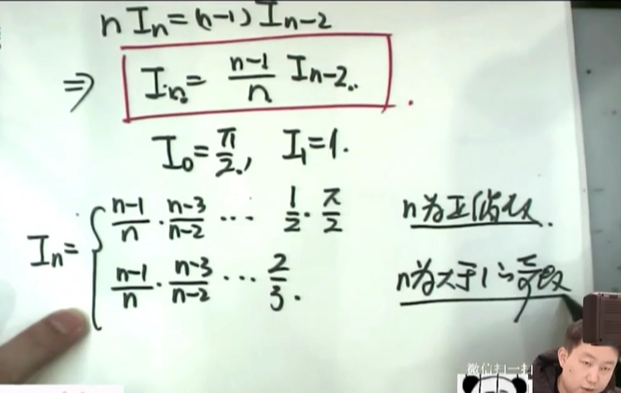 nIn=(n-1)In-2
⇒ In= n-1/n In-2.
I0=π/2, I1=1.
In= { n-1/n · n-3/n-2 ··· 1/2 · π/2 n为正偶数.
n-1/n · n-3/n-2 ··· 2/3. n为大于1的奇数
微信扫一扫